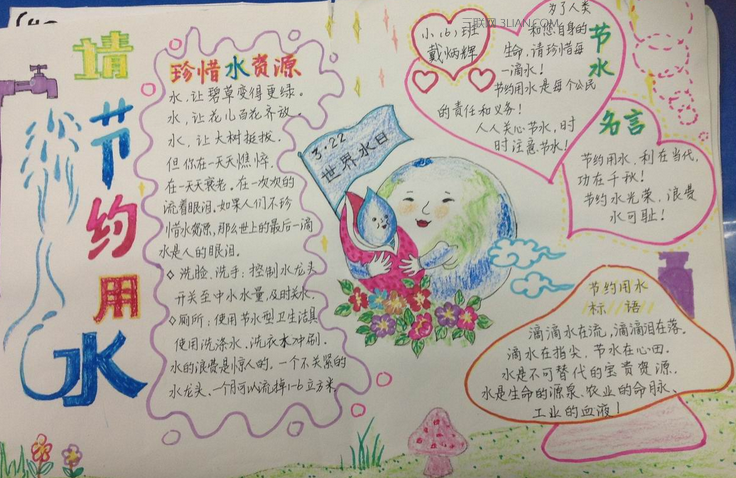 请
节
约
用
水
珍惜水资源
水,让碧草变得更绿。
水,让花儿百花齐放。
水,让大树挺拔。
但你在一天天憔悴,
在一天天衰老。在一次次的
流着眼泪。如果人们不珍
惜水资源,那么世上的最后一滴
水是人的眼泪。
◇洗脸、洗手:控制水龙头
开关至中水水量,及时关水。
◇厕所:使用节水型卫生洁具
使用洗涤水、洗衣水冲刷。
水的浪费是惊人的,一个不关紧的
水龙头,一个月可以流掉1-6立方米
3.22
世界水日
小(6)班
戴炳辉
三联网 3LIAN.COM
为了人类
和您自身的
生命,请珍惜每
一滴水!
节约用水是每个公民
的责任和义务!
人人关心节水,时
时注意节水!
节
水
名言
节约用水,利在当代,
功在千秋!
节约水光荣,浪费
水可耻!
节约用水
标语
滴滴水在流,滴滴泪在落。
滴水在指尖,节水在心田。
水是不可替代的宝贵资源。
水是生命的源泉、农业的命脉、
工业的血液!